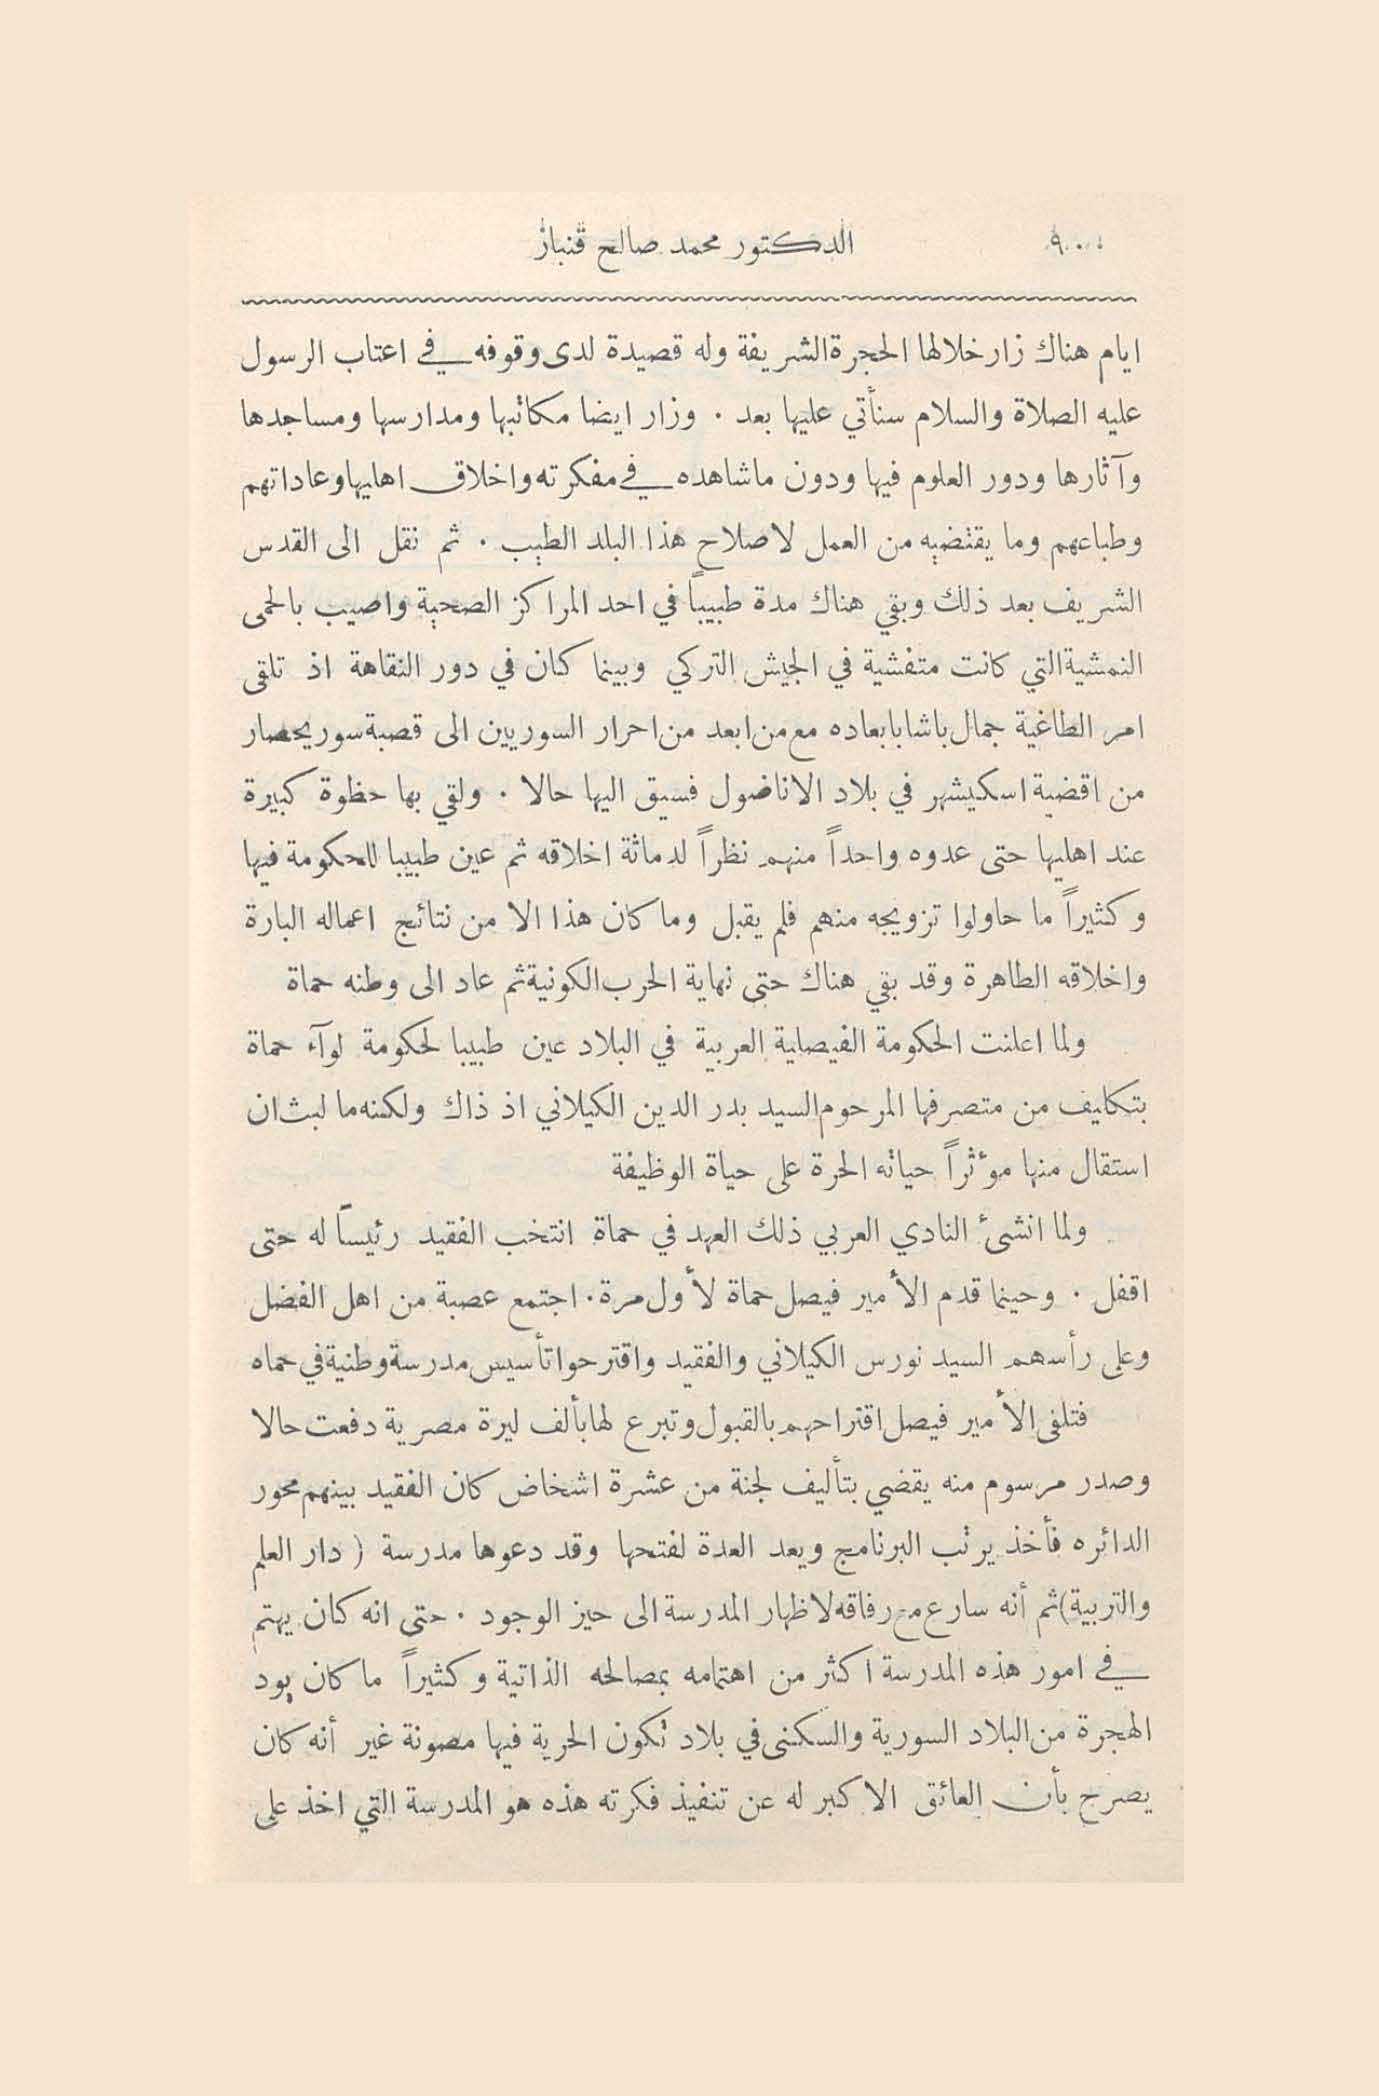 الدكتور محمد صالح قنباز
ايام هناك زار خلالها الحجرة الشريفة وله قصيدة لدى وقوفه في اعتاب الرسول
عليه الصلاة والسلام سنأتي عليها بعد . وزار ايضا مكاتبها ومدارسها ومساجدها
وآثارها ودور العلوم فيها ودون ما شاهده في مفكرته واخلاق اهليها وعاداتهم
وطباعهم وما يقتضيه من العمل لاصلاح هذا البلد الطيب . ثم نقل الى القدس
الشريف بعد ذلك وبقي هناك مدة طبيباً في احد المراكز الصحية واصيب بالحمى
النمشية التي كانت متفشية في الجيش التركي وبينما كان في دور النقاهة اذ تلقى
امر الطاغية جمال باشا بابعاده مع من ابعد من احرار السوريين الى قصبة سوريحصار
من اقضية اسكيشهر في بلاد الاناضول فسيق اليها حالا . ولقي بها حظوة كبيرة
عند اهليها حتى عدوه واحداً منهم نظراً لدماثة اخلاقه ثم عين طبيبا للحكومة فيها
وكثيراً ما حاولوا تزويجه منهم فلم يقبل وما كان هذا الا من نتائج اعماله البارة
واخلاقه الطاهرة وقد بقي هناك حتى نهاية الحرب الكونية ثم عاد الى وطنه حماة
ولما اعلنت الحكومة الفيصلية العربية في البلاد عين طبيبا لحكومة لوآء حماة
بتكليف من متصرفها المرحوم السيد بدر الدين الكيلاني اذ ذاك ولكنه ما لبث ان
استقال منها مؤثراً حياته الحرة على حياة الوظيفة
ولما انشئ النادي العربي ذلك العهد في حماة انتخب الفقيد رئيساً له حتى
اقفل . وحينما قدم الأمير فيصل حماة لأول مرة . اجتمع عصبة من اهل الفضل
وعلى رأسهم السيد نورس الكيلاني والفقيد واقترحوا تأسيس مدرسة وطنية في حماه
فتلقى الأمير فيصل اقتراحهم بالقبول وتبرع لها بألف ليرة مصرية دفعت حالا
وصدر مرسوم منه يقضي بتأليف لجنة من عشرة اشخاص كان الفقيد بينهم محور
الدائره فأخذ يرتب البرنامج ويعد العدة لفتحها وقد دعوها مدرسة ( دار العلم
والتربية ) ثم أنه سارع مع رفاقه لاظهار المدرسة الى حيز الوجود . حتى انه كان يهتم
في امور هذه المدرسة اكثر من اهتمامه بمصالحه الذاتية وكثيراً ما كان يود
الهجرة من البلاد السورية والسكنى في بلاد تكون الحرية فيها مصونة غير أنه كان
يصرح بأن العائق الاكبر له عن تنفيذ فكرته هذه هو المدرسة التي اخذ على